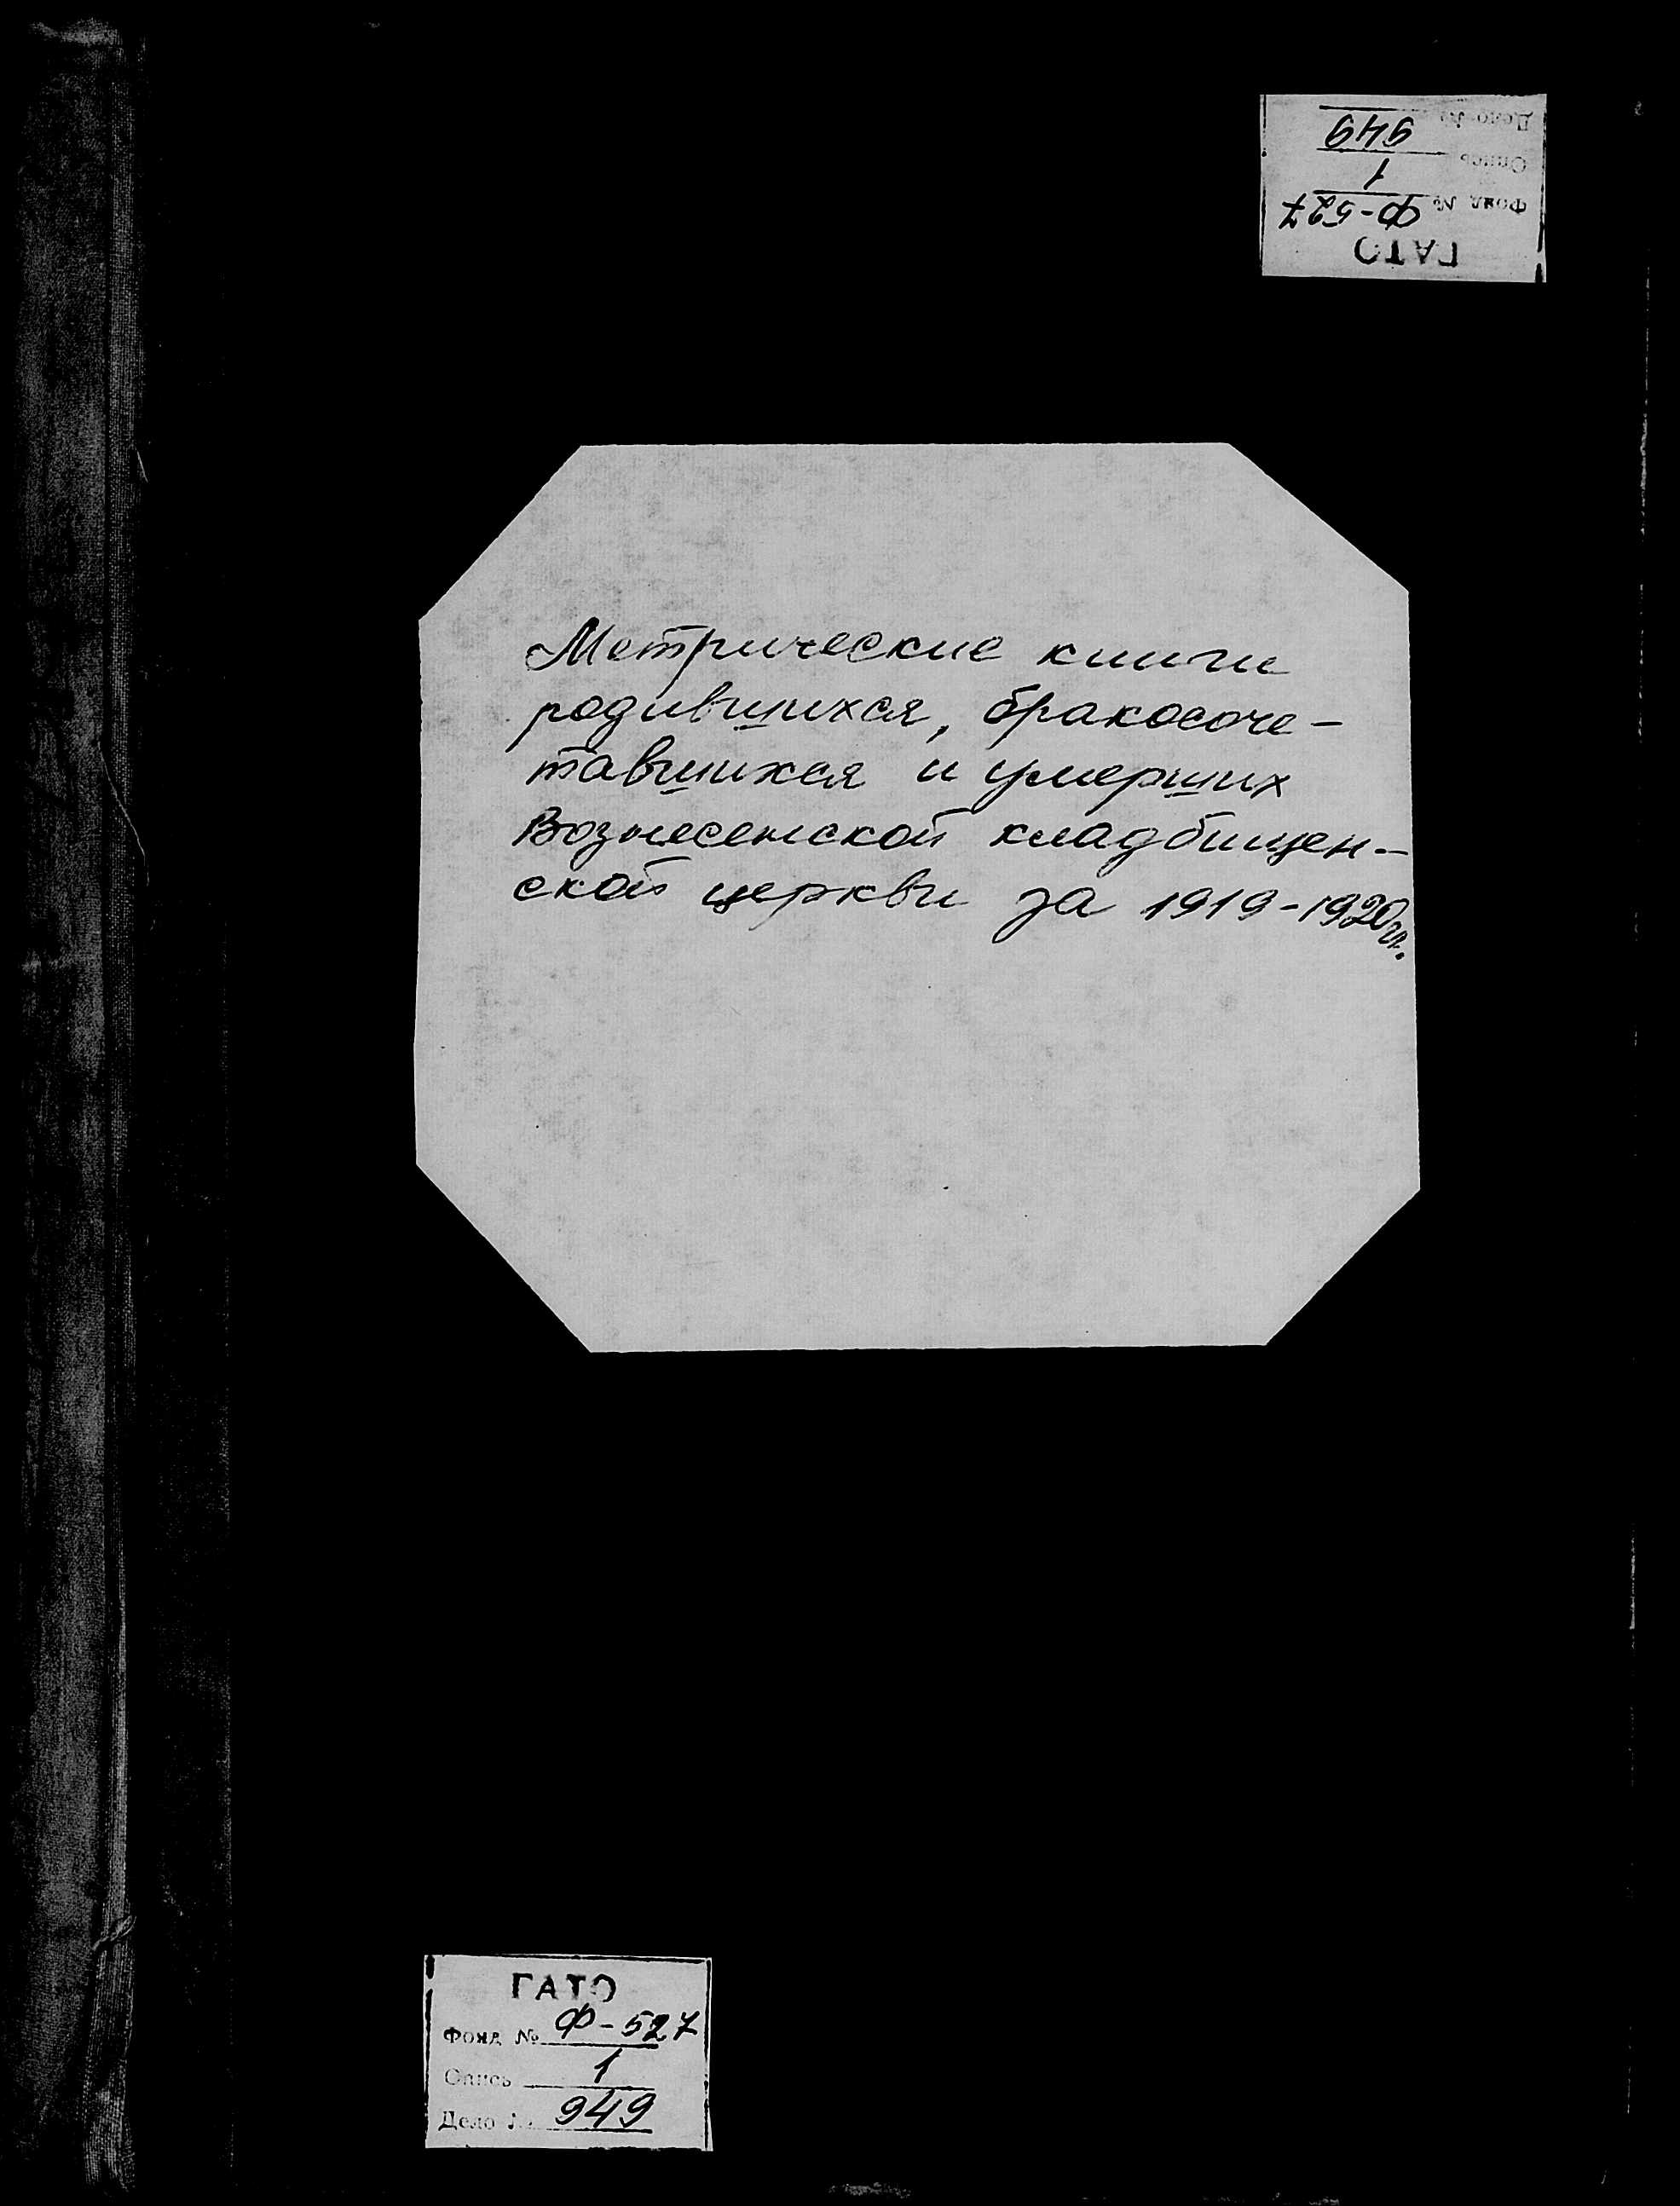 ГАТО
Фонд № Ф-527
Опись 1
Дело № 949
Метрические книги
родившихся, бракосоче-
тавшихся и умерших
Вознесенской кладбищен-
ской церкви за 1919-1920гг.
ГАТО
Фонд № Ф-527
Опись 1
Дело № 949